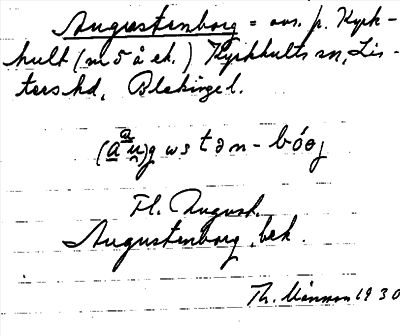 Augustenborg = avs. p. Kyrk-
hult (m 5 å ek.) Kyrkhults sn, Lis-
ters hd, Blekinge l.
Fl. August.
Augustenborg, bek.
Th. 1930